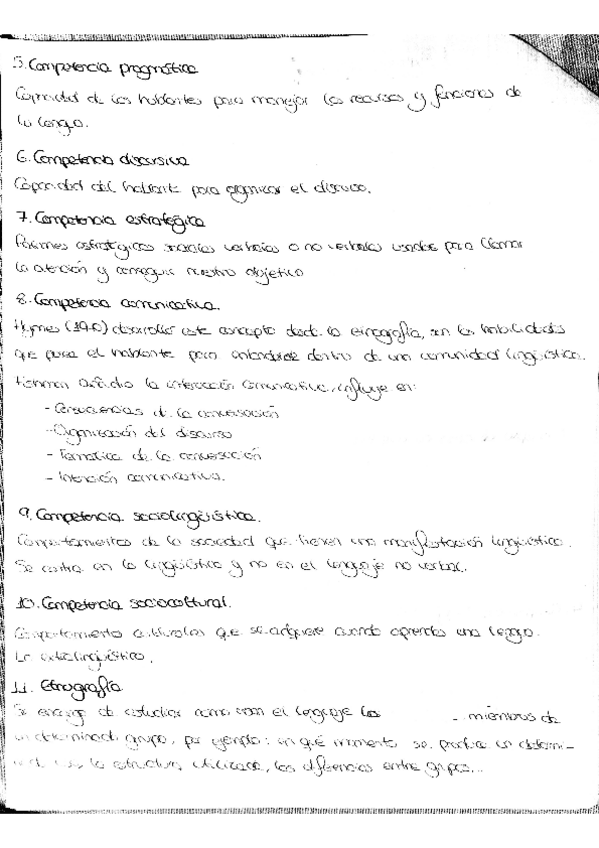 5. Competencia pragmática
Capacidad de los hablantes para manejar los recursos y funciones de
la lengua.
6. Competencia discursiva
Capacidad del hablante para organizar el discurso.
7. Competencia estratégica
estratégicas verbales o no verbales usadas para llamar
la atención y conseguir nuestro objetivo
8. Competencia comunicativa.
Hymes desarrolla este concepto desde la etnografía, son las habilidades
que posee el hablante para entenderse dentro de una comunidad lingüística.
añadió la interacción comunicativa, influye en:
- Secuencias de la conversación
- Organización del discurso
- Temática de la conversación
- Intención comunicativa.
9. Competencia sociolingüística.
Comportamientos de la sociedad que tienen una manifestación lingüística.
Se centra en la lingüística y no en el lenguaje no verbal.
10. Competencia sociocultural.
Comportamiento culturales que se adquiere cuando aprendes una lengua.
Lo extralingüístico.
11. Etnografía
Se encarga de estudiar como usan el lenguaje los miembros de
un determinado grupo, por ejemplo: en qué momento se produce un determi-
la estructura utilizada, las diferencias entre grupos...